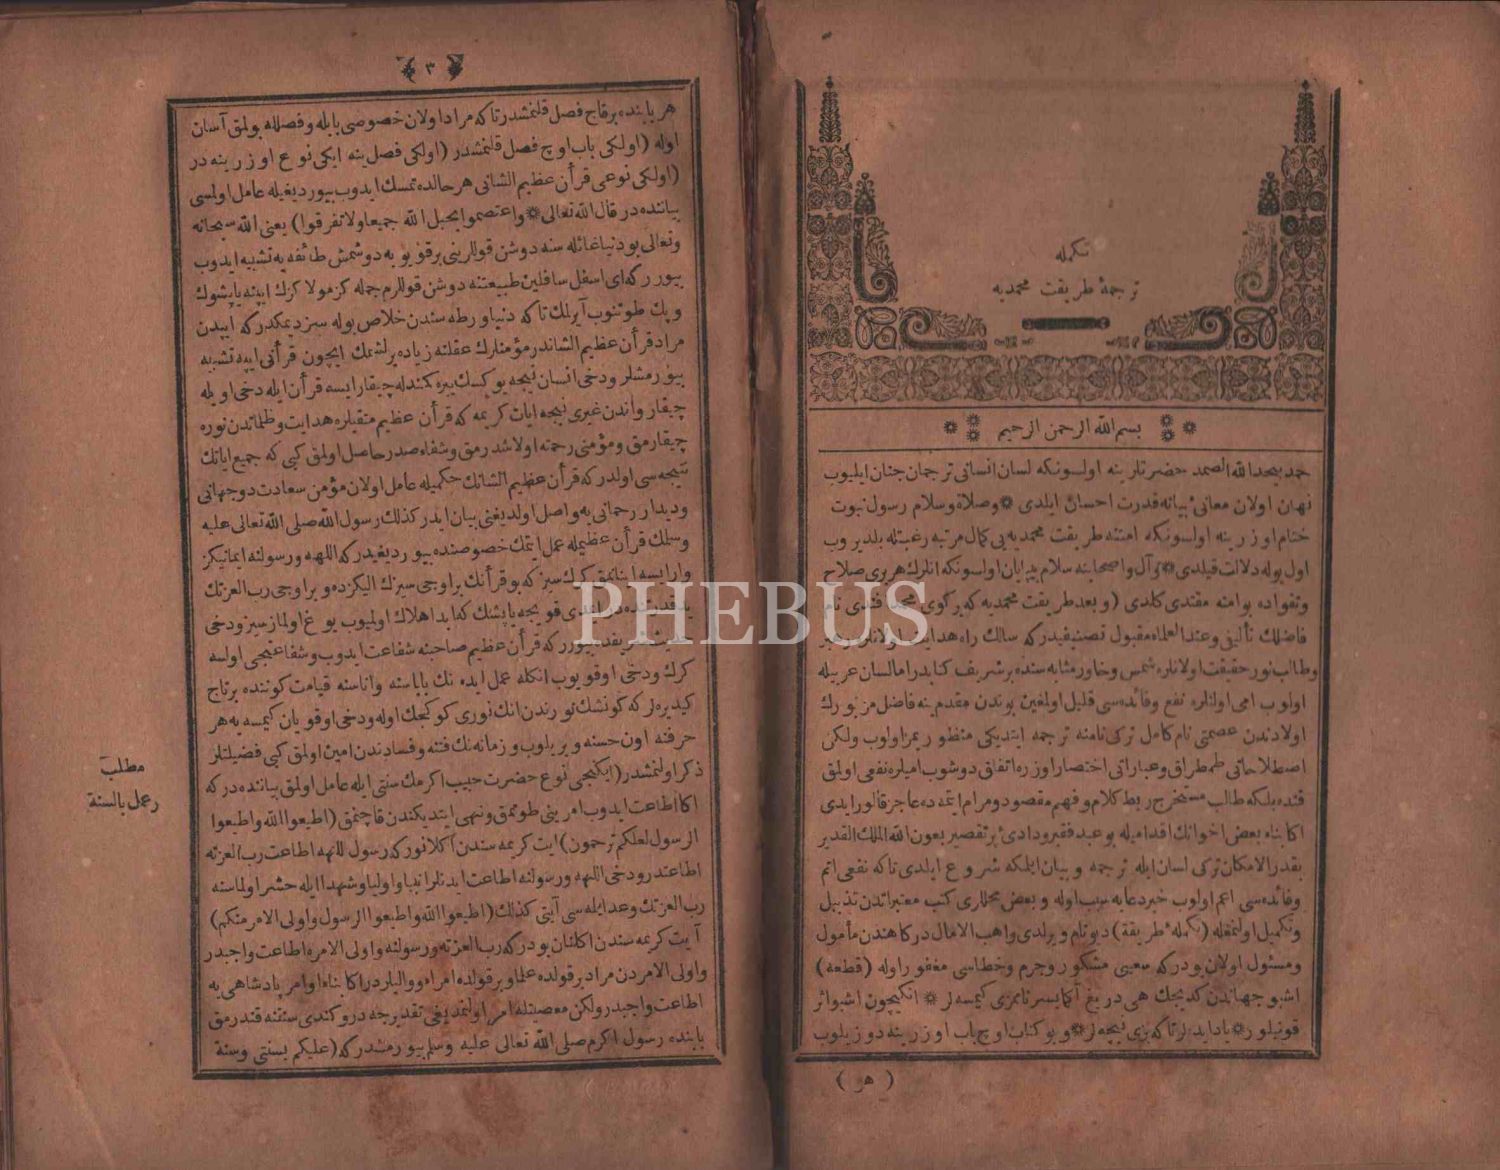 تكمله
ترجمهٔ طريقت محمديه
بسم الله الرحمن الرحيم
حمد بيحد الله الصمد حضرتلرينه اولسونكه لسان انسانى ترجمان جنان ايليوب
نهان اولان معانىٔ بيانه قدرت احسان ايلدى * وصلاة وسلام رسول نبوت
ختام اوزرينه اولسونكه امتنه طريقت محمديه يى كمال مرتبه رغبتله بلديروب
اول يوله دلالت قيلدى * وآل واصحابنه سلام بى پايان اولسونكه انلرك هربرى صلاح
وتقواده بو امته مقتدى كلدى (وبعد طريقت محمديه كه بركوى محمد افندى نام
فاضلك تأليفى وعند العلماء مقبول تصنيفيدركه سالك راه هدايت اولانلره
وطالب نور حقيقت اولانلره شمس وخاور مثابه سنده بر شريف كتابدر اما لسان عربيله
اولوب امى اولنلره نفع وفائده سى قليل اولمغين بوندن مقدم ينه فاضل مزبورك
اولادندن عصمتى نام كامل تركى نامنه ترجمه ايتديكى منظوريمز اولوب ولكن
اصطلاحاتى طمطراق وعباراتى اختصار اوزره اتفاق دوشوب اميلره نفعى اولمق
قنده بلكه طالب مستخرج ربط كلام وفهم مقصود ومرام ايتمه ده عاجز قالور ايدى
اكا بناء بعض اخوانك اقداميله بو عبد فقير ودادئ پر تقصير بعون الله الملك القدير
بقدر الامكان تركى لسان ايله ترجمه وبيان ايلمكه شروع ايلدى تاكه نفعى اتم
وفائده سى اعم اولوب خير دعايه سبب اوله وبعض محللرى كتب معتبراتدن تذييل
وتكميل اولنمغله (تكملهٔ طريقة) ديو نام ويرلدى واهب الامال دركاهندن مأمول
ومسئول اولان بودركه سعيى مشكور وجرم وخطاسى مغفور اوله (قطعه)
اشبو جهاندن كديجك هى دريغ آكمايسر نامزى كيمسه لر * انكيچون اشبو اثر
قونيلور * ياد ايدلر تاكه بزى نيجه لر * وبو كتاب اوچ باب اوزرينه دوزيلوب
(هر)
٣
هر بابنده برقاچ فصل قلنمشدر تاكه مراد اولان خصوصى بابله وفصلله بولمق آسان
اوله (اولكى باب اوچ فصل قلنمشدر (اولكى فصل ينه ايكى نوع اوزرينه در
(اولكى نوعى قرأن عظيم الشانى هر حالده تمسك ايدوب بيورديغيله عامل اولمسى
بياننده در قال الله تعالى * واعتصموا بحبل الله جميعا ولا تفرقوا) يعنى الله سبحانه
وتعالى بو دنيا غائله سنه دوشن قوللرينى بر قويويه دوشمش طائفه يه تشبيه ايدوب
بيوررکه اى اسفل سافلين طبيعتنه دوشن قوللرم جمله كز مولاكزك ايپنه ياپشوك
وپك طوتنوب آيرلمك تاكه دنيا ورطه سندن خلاص بوله سز ديمكدركه ايپدن
مراد قرأن عظيم الشاندر مؤمنلرك عقلنه زياده يرلشمك ايچون قرأنى ايپه تشبيه
بيورمشلر ودخى انسان نيجه يوكسك يره كمندله چيقار ايسه قرأن ايله دخى اويله
چيقار واندن غيرى نيجه ايات كريمه كه قرأن عظيم متقيلره هدايت وظلماتدن نوره
چيقارمق ومؤمنى رحمته اولاشدرمق وشفاء صدر حاصل اولمق كبى كه جميع اياتك
نتيجه سى اولدركه قرأن عظيم الشانك حكميله عامل اولان مؤمن سعادت دوجهانى
وديدار رحمانى يه واصل اولديغنى بيان ايدر كذلك رسول الله صلى الله تعالى عليه
وسلمك قرأن عظيمله عمل ايتمك خصوصنده بيورديغيدركه اللهه ورسولنه ايمانيكز
وار ايسه اينانمق كرك سز كه بو قرأنك بر اوجى سزك اليكزده وبر اوجى رب العزتك
يد قدرتنده در ايمدى قويجه ياپشك كه ابدا هلاك اولميوب يوغ اولماز سز ودخى
حديث شريفده بيوررکه قرأن عظيم صاحبنه شفاعت ايدوب وشفاعيجى اولسه
كرك ودخى اوقويوب انكله عمل ايده نك باباسنه واناسنه قيامت كوننده بر تاج
كيديره لر كه كونشك نورندن انك نورى كوكچك اوله ودخى اوقويان كيمسه يه هر
حرفنه اون حسنه ويريلوب وزمانه نك فتنه وفسادندن امين اولمق كبى فضيلتلر
ذكر اولنمشدر (ايكنجى نوع حضرت حبيب اكرمك سنتى ايله عامل اولمق بياننده دركه
اكا اطاعت ايدوب امرينى طوتمق ونهى ايتديكندن قاچنمق (اطيعوا الله واطيعوا
الرسول لعلكم ترحمون) ايت كريمه سندن آكلانوركه رسول اللهه اطاعت رب العزته
اطاعتدر ودخى اللهه ورسولنه اطاعت ايدنلر انبيا واوليا وشهدا ايله حشر اولماسنه
رب العزتك وعد ايلمه سى آيتى كذلك (اطيعوا الله واطيعوا الرسول واولى الامر منكم)
آيت كريمه سندن اكلنان بودركه رب العزته ورسولنه واولى الامره اطاعت واجبدر
واولى الامردن مراد بر قولده علما وبر قولده امراء ووالىلردر اكا بناء اوامر پادشاهى يه
اطاعت واجبدر ولكن معصيتله امر اولنمديغى تقديرجه در وكندى سنتنه قندرمق
بابنده رسول اكرم صلى الله تعالى عليه وسلم بيورمشدركه (عليكم بسنتى وسنة
مطلب
عمل بالسنة
PHEBUS